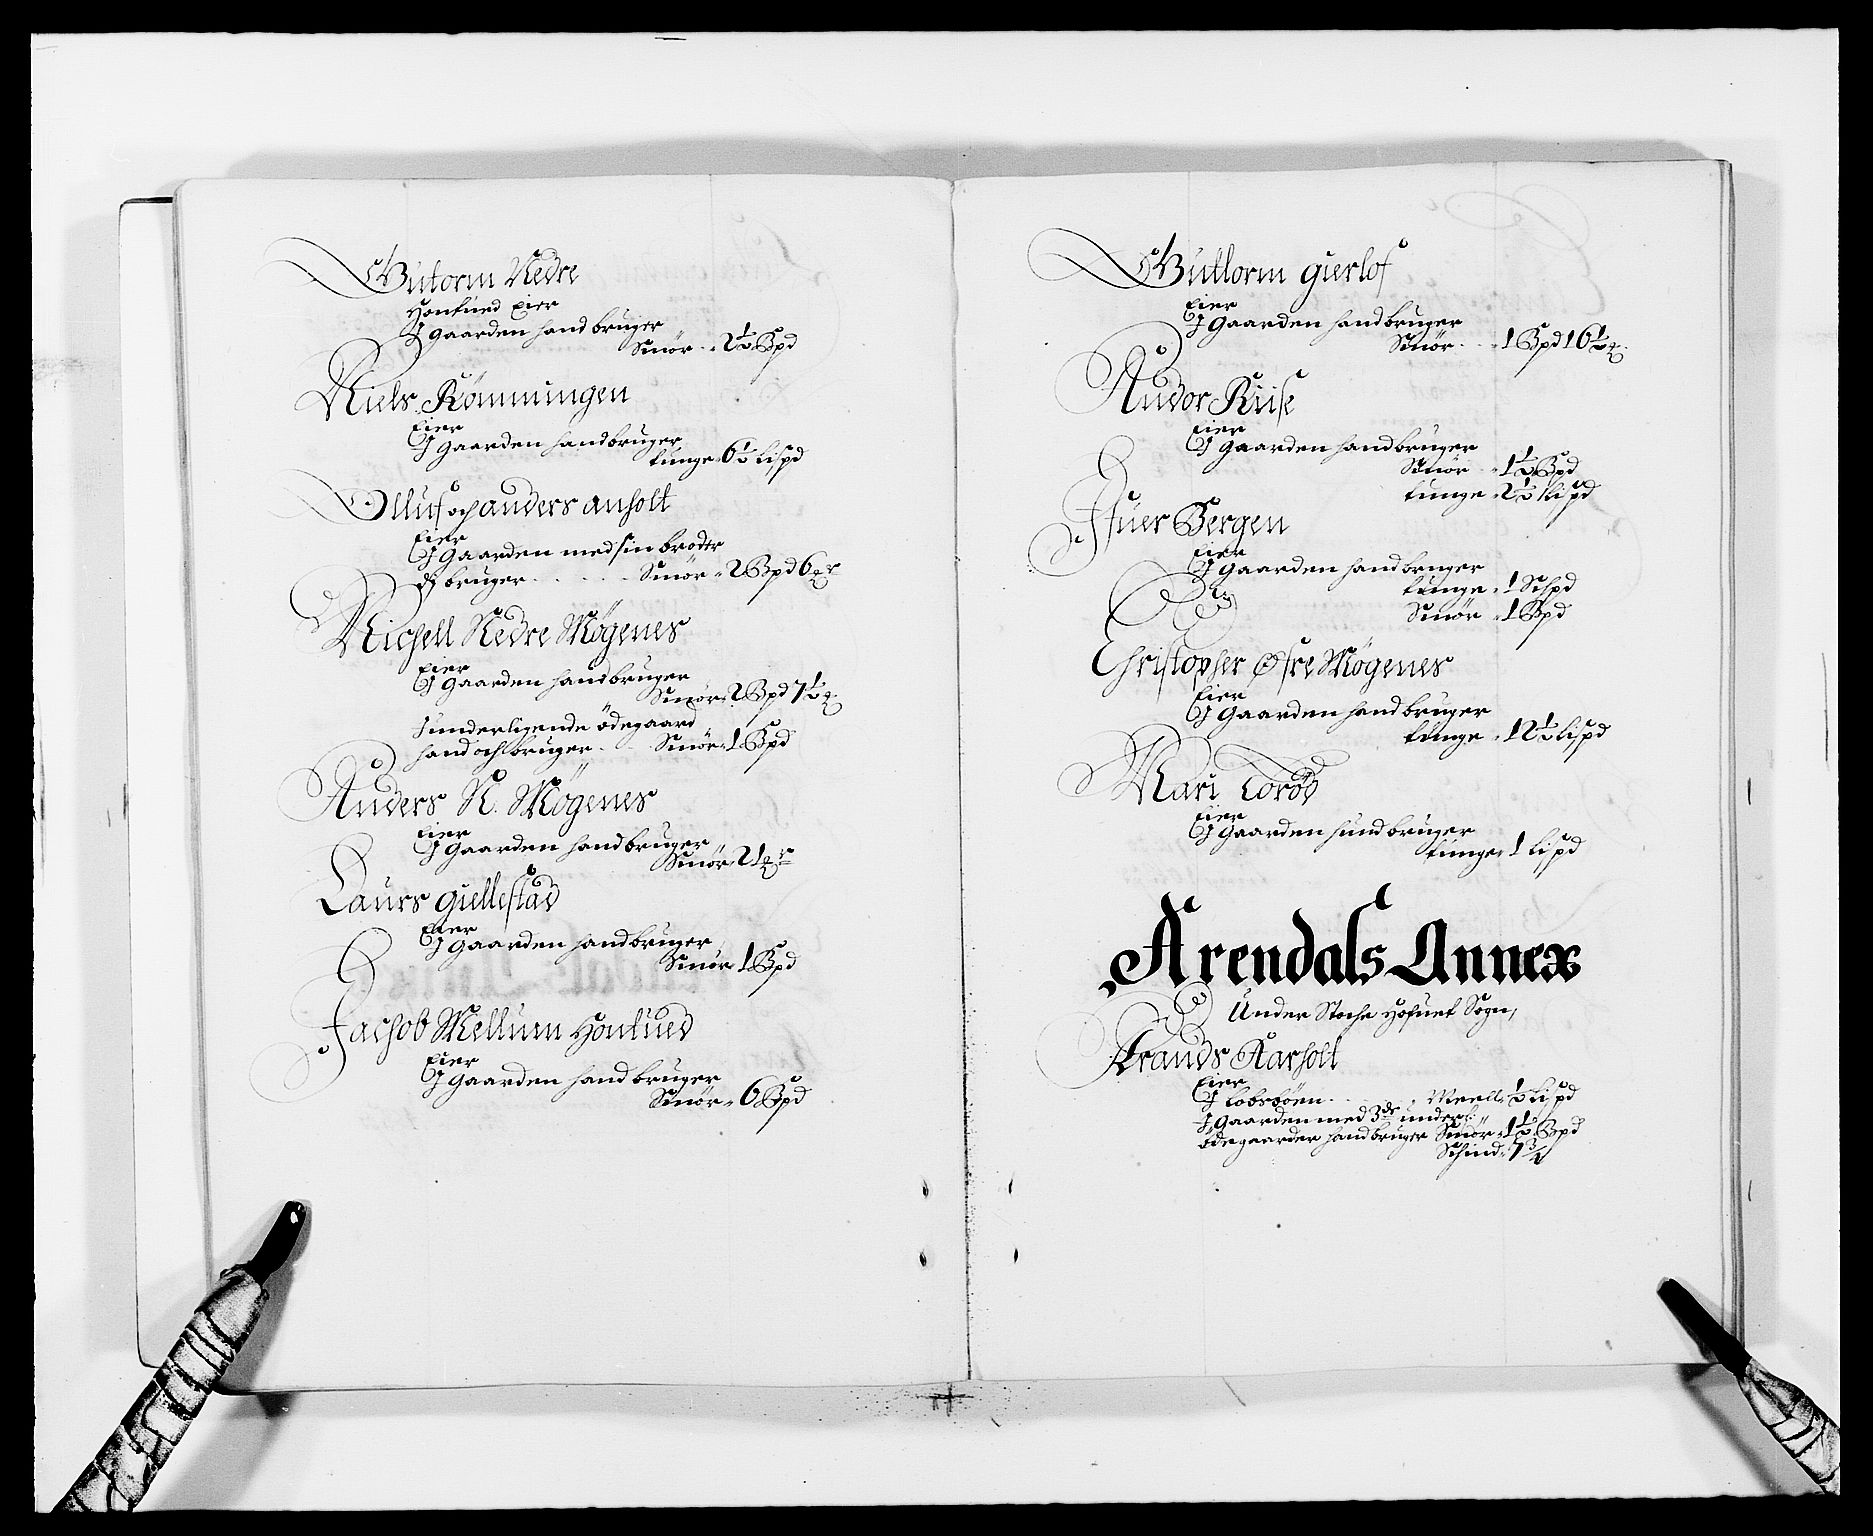 Gutorm Nedre
Hontued Eier
J gaarden hand bruger
Smör - 2½ Bpd
Niels Römmingen
Eier
J gaarden hand bruger
tunge - 6½ Lispd
Olluf och anders anholt
Eier
J gaarden med sin broder
dj bruger . . . . . Smör - 2 Bpd 6
Michell Nedre Mögenes
Eier
J gaarden hand bruger
Smör - 2 Bpd 7½
Sunderligende ödegaard
hand och bruger . . Smör - 1 Bpd
Anders N. Mögenes
Eier
J gaarden hand bruger
Smör - 21
Laurs giellestad
Eier
J gaarden hand bruger
Smör 1 Bpd
Jachob Mellum Hontued
Eier
J gaarden hand bruger
Smör - 6 Bpd
Guttorm gierlöf
Eier
J gaarden hand bruger
Smör . . . 1 Bpd 16½
Andor Riise
Eier
J gaarden hand bruger
Smör - 1½ Bpd
tunge - 2½ lispd
Jfuer Bergen
Eier
J gaarden hand bruger
tunge - 1 Schpd
Smör - 1 Bpd
Christopher Öfre Mögenes
Eier
J gaarden hand bruger
tunge - 12½ lispd
Mari Toröd
Eier
J gaarden hund bruger
tunge - 1 lispd
Arendals Annex
Under Stoche Hofuet Sogn,
Trands Karholt
Eier
J . . . Meell - ½ Lispd
J gaarden med 3de underl:
ödegaarder hand bruger Smör - 1½ Bpd
Schind - 7¾